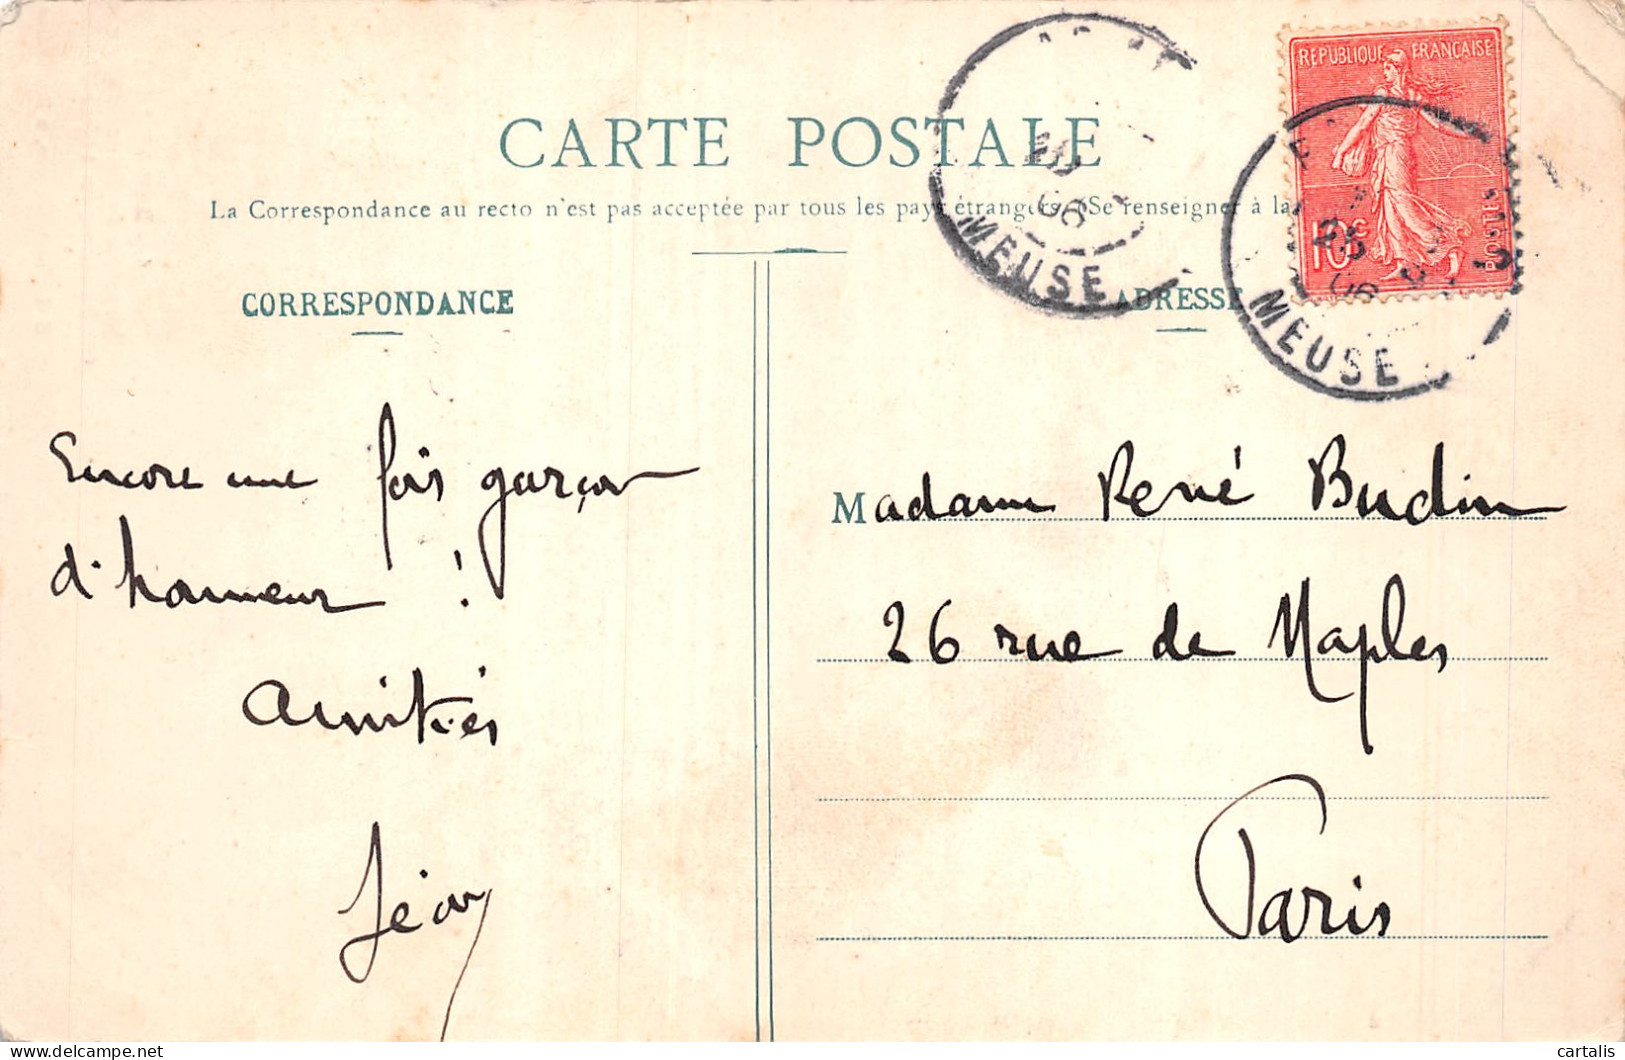 CARTE POSTALE
La Correspondance au recto n'est pas acceptée par tous les pays étrangers. (Se renseigner à la
CORRESPONDANCE
ADRESSE
REPUBLIQUE FRANÇAISE
10c
POSTES
06
MEUSE
06
MEUSE
Encore une fois garçon
d'honneur !
Amitiés
Jean
Madame René Budin
26 rue de Naples
Paris
delcampe.net
cartalis